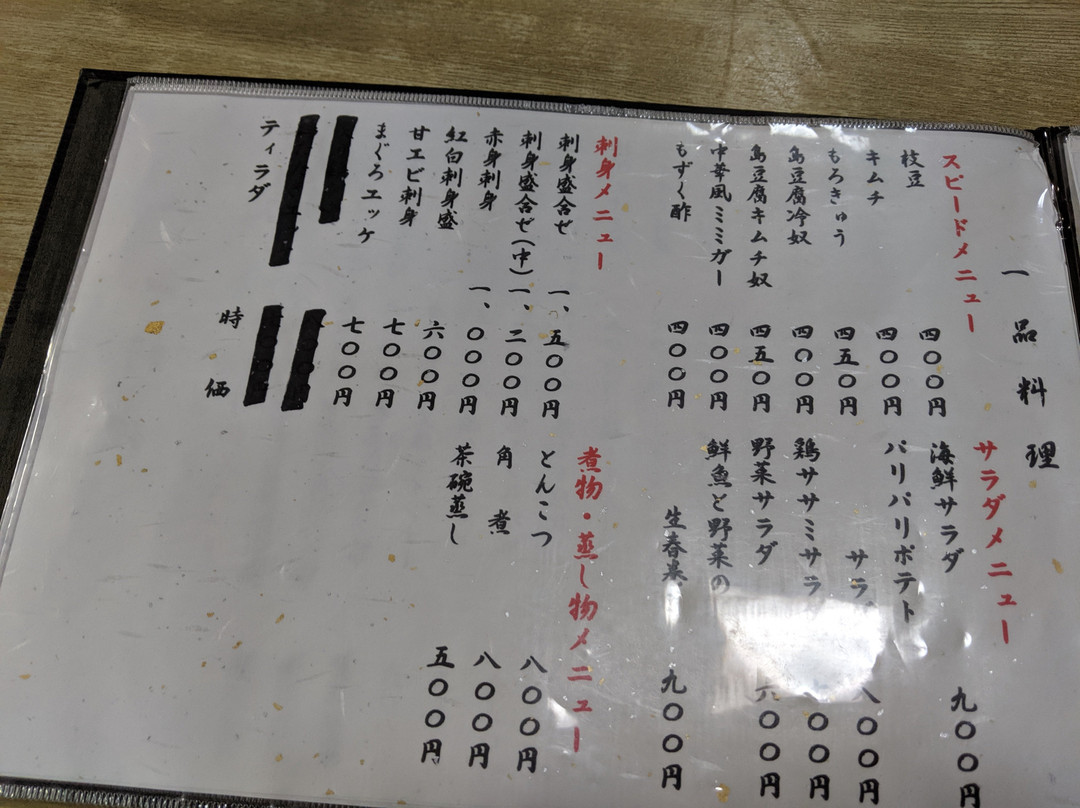 一品料理
スピードメニュー
枝豆 四〇〇円
キムチ 四〇〇円
もろきゅう 四五〇円
島豆腐冷奴 四〇〇円
島豆腐キムチ奴 四五〇円
中華風ミミガー 四〇〇円
もずく酢 四〇〇円
刺身メニュー
刺身盛合せ 一、五〇〇円
刺身盛合せ(中) 一、二〇〇円
赤身刺身 一、〇〇〇円
紅白刺身盛 六〇〇円
甘エビ刺身 七〇〇円
まぐろユッケ 七〇〇円
ティラダ 時価
サラダメニュー
海鮮サラダ 九〇〇円
パリパリポテト
サラダ 八〇〇円
鶏ササミサラ 〇〇円
野菜サラダ 六〇〇円
鮮魚と野菜の
生春巻 九〇〇円
煮物・蒸し物メニュー
とんこつ 八〇〇円
角煮 八〇〇円
茶碗蒸し 五〇〇円